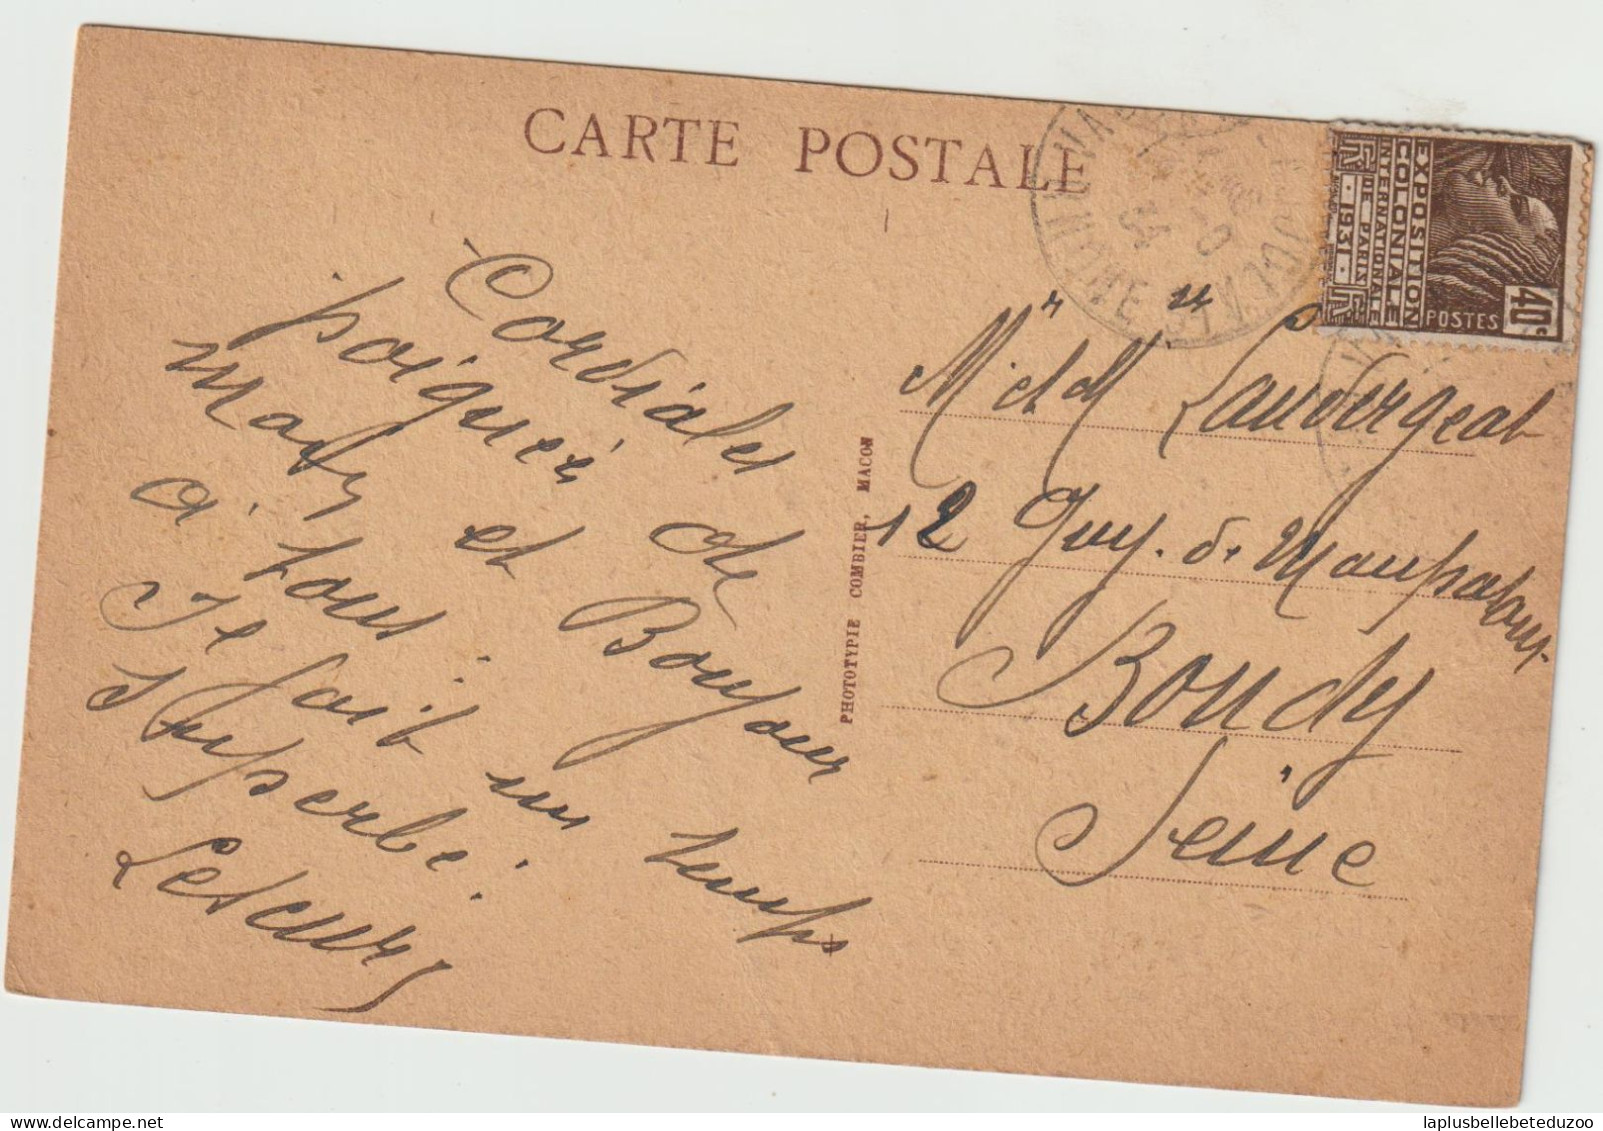 CARTE POSTALE
Cordiales
poignées de
main et Bonjour
à tous.
Je fait un temps
superbe.
Leseur
PHOTOTYPIE COMBIER, MACON
EXPOSITION
COLONIALE
INTERNATIONALE
DE PARIS
RF · 1931 · RF
POSTES
40c
34
Mr et Mme Laudergeat
12 Guy. de Maupassant
Bondy
Seine
laplusbellebeteduzoo